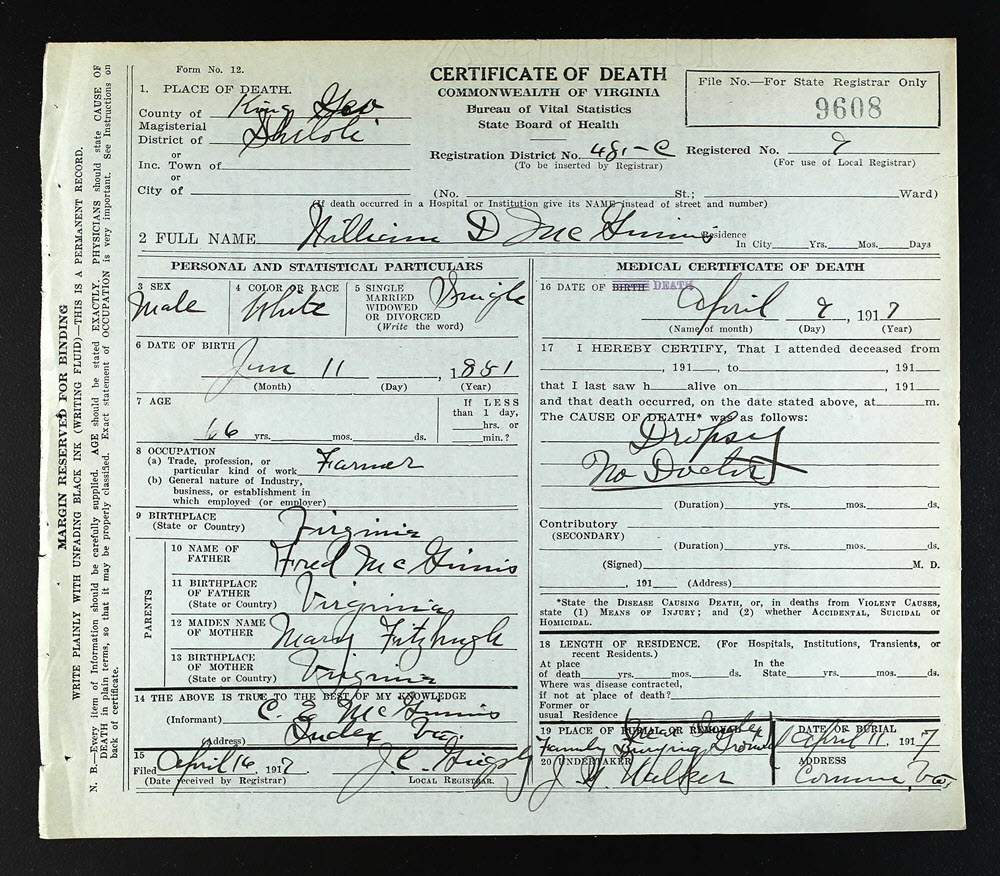 Form No. 12.
CERTIFICATE OF DEATH
COMMONWEALTH OF VIRGINIA
Bureau of Vital Statistics
State Board of Health
File No.—For State Registrar Only
9608
1. PLACE OF DEATH.
County of King Geo
Magisterial
District of Shiloh
or
Inc. Town of
or
City of
Registration District No. 481-C Registered No. 9
(To be inserted by Registrar) (For use of Local Registrar)
(No. St.; Ward)
(If death occurred in a Hospital or Institution give its NAME instead of street and number)
2 FULL NAME William D McGinnis Residence
In City Yrs. Mos. Days
PERSONAL AND STATISTICAL PARTICULARS
3 SEX
Male
4 COLOR OR RACE
White
5 SINGLE
MARRIED
WIDOWED
OR DIVORCED
(Write the word)
Single
6 DATE OF BIRTH
June 11, 1851
(Month) (Day) (Year)
7 AGE
66 yrs. mos. ds.
If LESS
than 1 day,
hrs. or
min.?
8 OCCUPATION
(a) Trade, profession, or
particular kind of work Farmer
(b) General nature of Industry,
business, or establishment in
which employed (or employer)
9 BIRTHPLACE
(State or Country) Virginia
PARENTS
10 NAME OF
FATHER Fred McGinnis
11 BIRTHPLACE
OF FATHER
(State or Country) Virginia
12 MAIDEN NAME
OF MOTHER Mary Fitzhugh
13 BIRTHPLACE
OF MOTHER
(State or Country) Virginia
14 THE ABOVE IS TRUE TO THE BEST OF MY KNOWLEDGE
(Informant) C. E. McGinnis
(Address) Index Va.
15
Filed April 16, 1917 J. C.
(Date received by Registrar) LOCAL REGISTRAR.
MEDICAL CERTIFICATE OF DEATH
16 DATE OF BIRTH DEATH
April 9, 1917
(Name of month) (Day) (Year)
17 I HEREBY CERTIFY, That I attended deceased from
, 191 , to , 191
that I last saw h alive on , 191
and that death occurred, on the date stated above, at m.
The CAUSE OF DEATH* was as follows:
Dropsy
No Doctor
(Duration) yrs. mos. ds.
Contributory
(SECONDARY)
(Duration) yrs. mos. ds.
(Signed) M. D.
, 191 (Address)
*State the DISEASE CAUSING DEATH, or, in deaths from VIOLENT CAUSES,
state (1) MEANS OF INJURY; and (2) whether ACCIDENTAL, SUICIDAL or
HOMICIDAL.
18 LENGTH OF RESIDENCE. (For Hospitals, Institutions, Transients, or
recent Residents.)
At place In the
of death yrs. mos. ds. State yrs. mos. ds.
Where was disease contracted,
if not at place of death?
Former or
usual Residence
19 PLACE OF BURIAL OR REMOVAL
Near Index
Family Burying Ground
DATE OF BURIAL
April 11, 1917
20 UNDERTAKER
Walker
ADDRESS
Comorn, Va
MARGIN RESERVED FOR BINDING
WRITE PLAINLY WITH UNFADING BLACK INK (WRITING FLUID)—THIS IS A PERMANENT RECORD.
N. B.—Every item of Information should be carefully supplied. AGE should be stated EXACTLY. PHYSICIANS should state CAUSE OF
DEATH in plain terms, so that it may be properly classified. Exact statement of OCCUPATION is very important. See Instructions on
back of certificate.